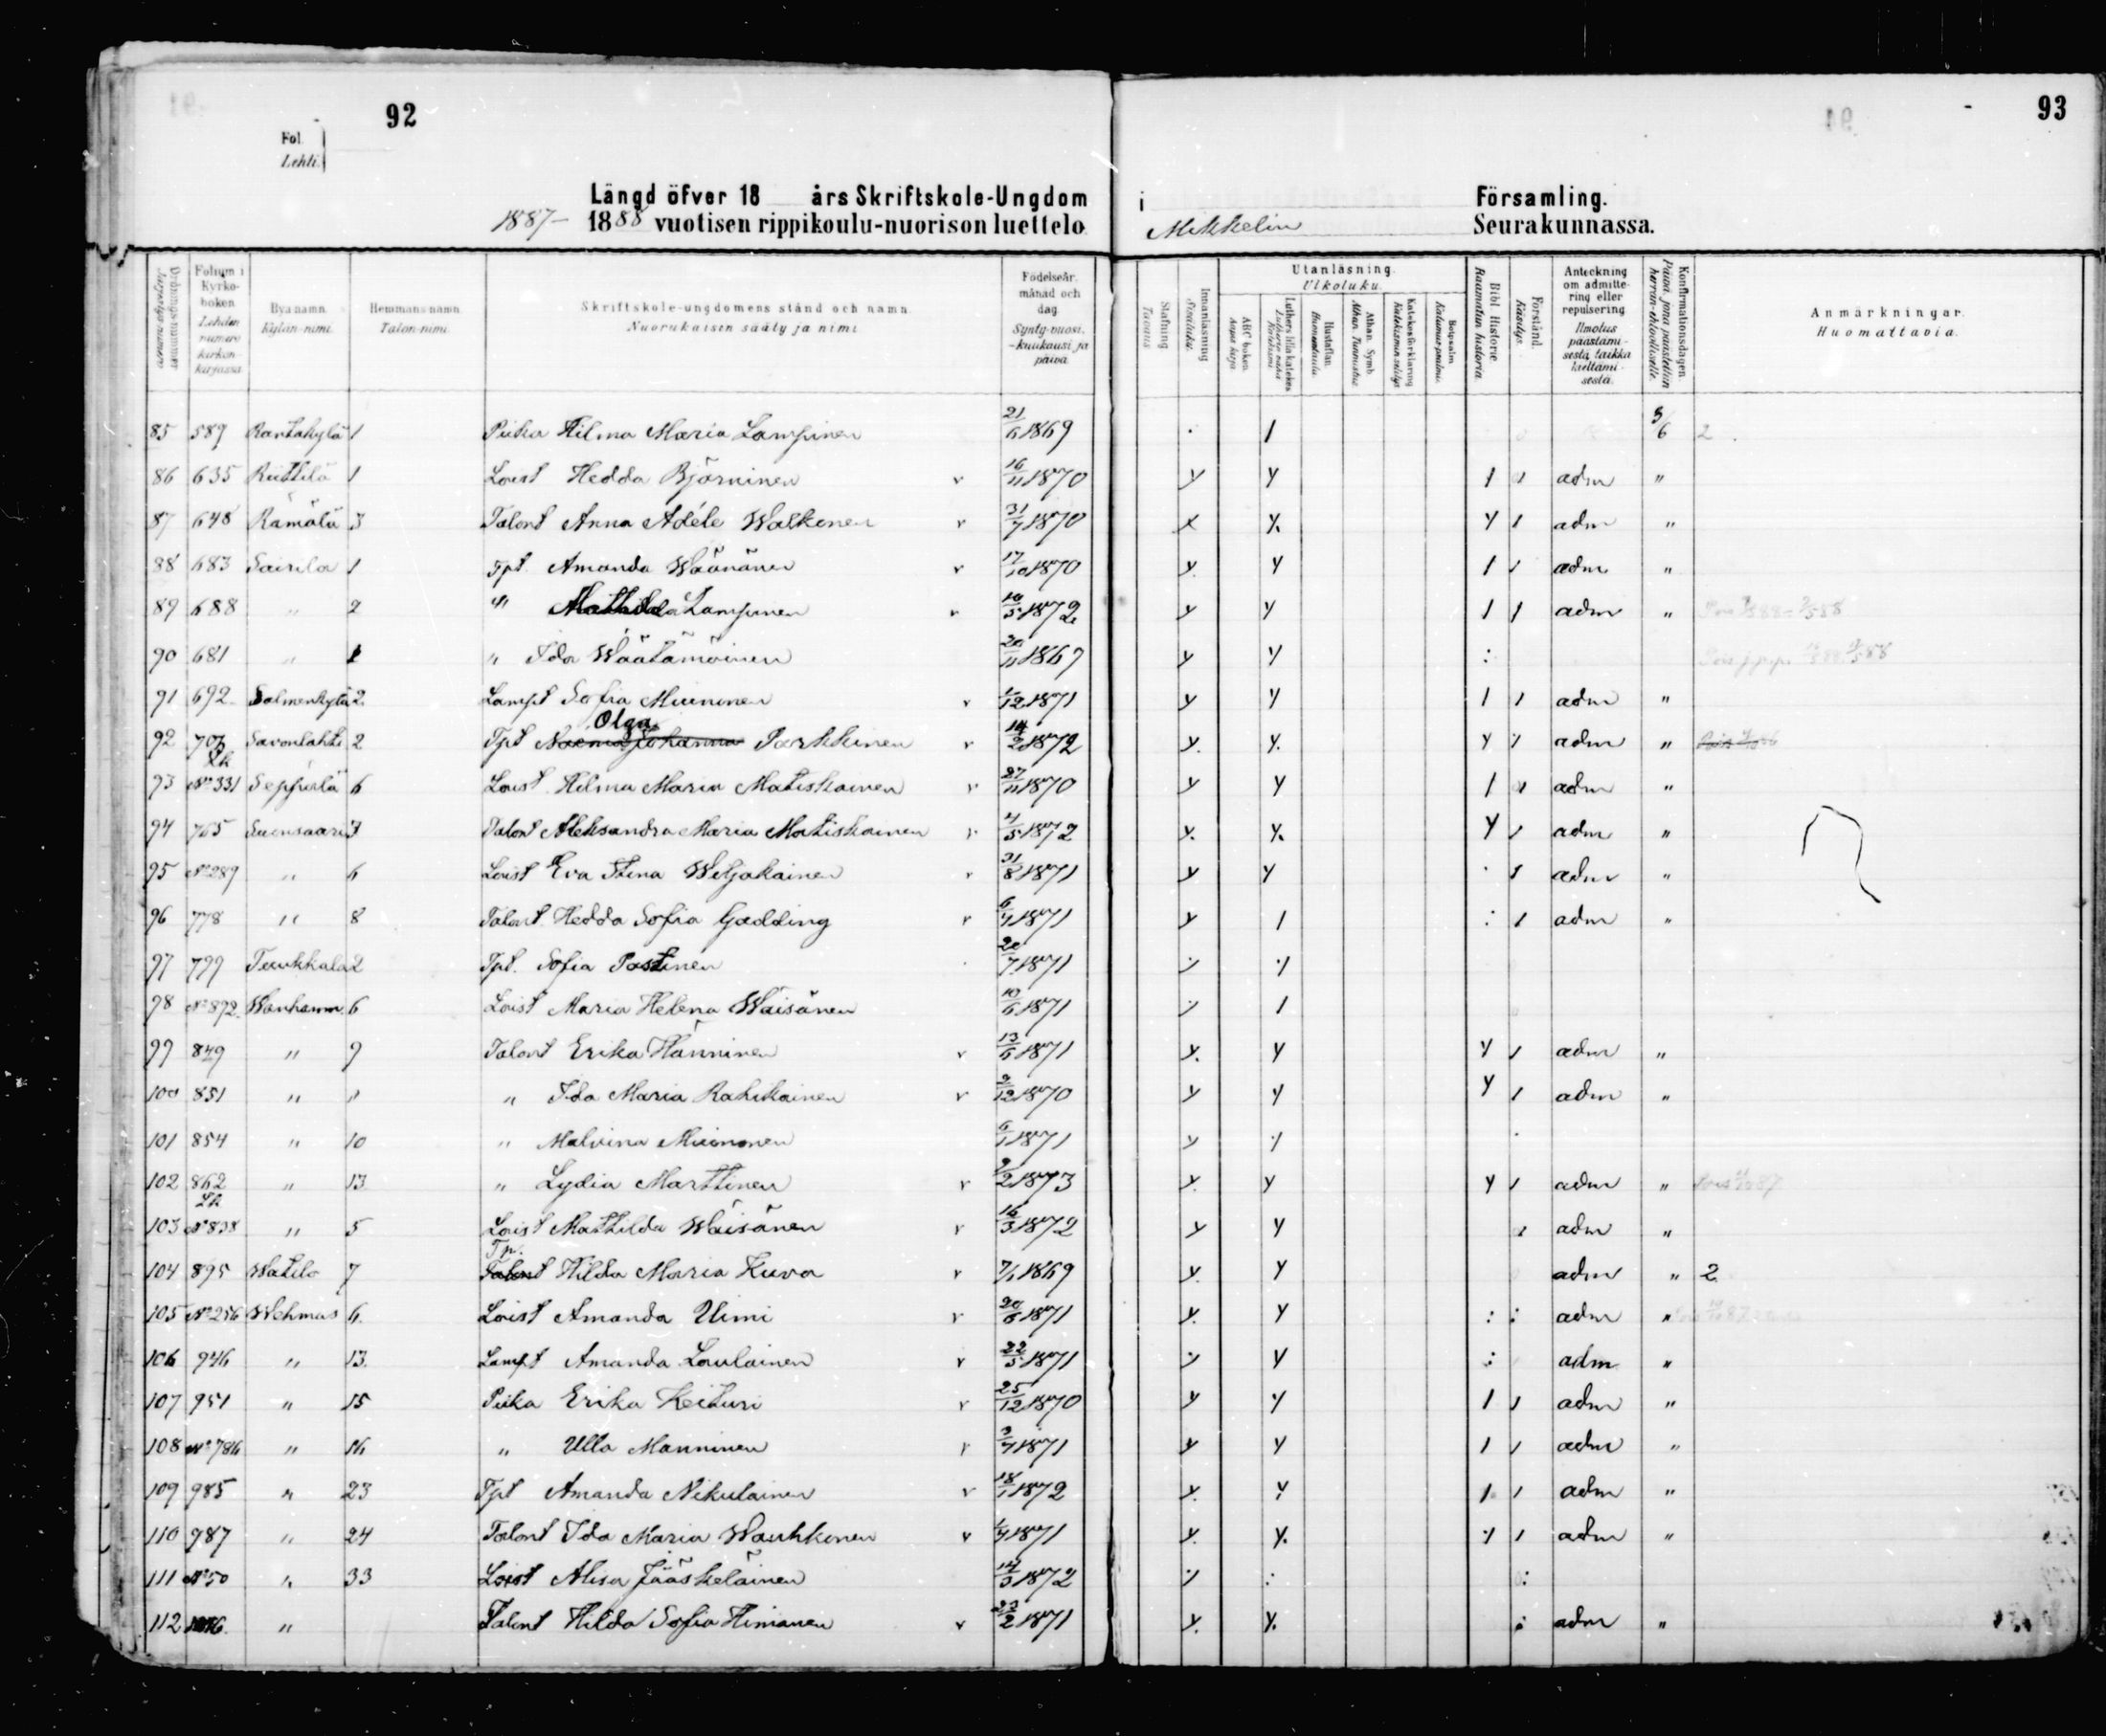 92
93
Fol.
Lehti.
Längd öfver 18 års Skriftskole-Ungdom i Församling.
1887- 1888 vuotisen rippikoulu-nuorison luettelo Mikkelin Seurakunnassa.
Ordningsnummer Folium i Kyrkoboken Lehden numero kirkonkirjassa
Byanamn. Kylän-nimi.
Hemmansnamn. Talon-nimi.
Skriftskole-ungdomens stånd och namn.
Nuorukaisen sääty ja nimi
Födelseår, månad och dag.
Synty-vuosi, -kuukausi ja päivä.
Stafning Tavaus
Innanläsning Sisäluku.
Utanläsning.
Ulkoluku.
ABC boken Aapis kirja
Luthers lilla katekes
Hustaflan. Huoneentaulu.
Athan. Symb. Athan. Tunnustus
Katekesförklaring Katekismin selitys
Botpsalm Katumus-psalmi.
Bibl Historie Raamatun historia.
Förstånd. Käsitys.
Anteckning om admittering eller repulsering
Ilmotus päästämisestä taikka kieltämisestä.
Konfirmationsdagen Päivä, jona päästettiin herran-ehtoolliselle.
Anmärkningar.
Huomattavia.
85 589 Rantakylä 1 Piika Hilma Maria Lampinen 21/6 1869 . 1 3/6 2
86 635 Riittilä 1 Loist Hedda Björninen v 16/11 1870 y y 1 adm "
87 648 Rämälä 3 Talont Anna Adéle Walkonen v 31/7 1870 x y. y 1 adm "
88 683 Sairila 1 Tpt. Amanda Wäänänen v 17/10 1870 y y 1 1 adm "
89 688 " 2 " Mathilda Lampinen v 10/5 1872 y y 1 1 adm "
90 681 " 1 " Ida Wäätämöinen 20/11 1867 y y :
91 692 Salmenkylä 2 Lampt Sofia Muinonen v 1/12 1871 y y 1 1 adm "
Olga
92 707 Savonlahti 2 Tpt Johanna Parkkinen v 14/2 1872 y. y. y 1 adm "
Lk
93 No 331 Seppärlä 6 Loist Hilma Maria Matiskainen v 27/11 1870 y y 1 adm "
94 765 Suonsaari 3 Talont Aleksandra Maria Matiskainen v 4/5 1872 y. y. y 1 adm "
95 No 289 " 6 Loist Eva Stina Wiljakainen v 31/8 1871 y y . 1 adm "
96 778 " 8 Talont Hedda Sofia Gadding v 6/7 1871 y 1 : 1 adm "
97 799 Tuukkala 2 Tpt. Sofia Pastinen 20/7 1871 y y
98 No 892 Wanhamm. 6 Loist Maria Helena Wäisänen 10/6 1871 y 1
99 849 " 9 Talont Erika Hänninen v 13/6 1871 y. y y 1 adm "
100 851 " " " Ida Maria Rahikainen v 9/12 1870 y y y 1 adm "
101 854 " 10 " Malvina Muinonen 6/1 1871 y y
102 862 " 13 " Lydia Marttinen v 9/2 1873 y. y y 1 adm "
Lk
103 No 838 " 5 Loist Mathilda Wäisänen v 16/3 1872 y y adm "
Tp.
104 895 Watila 7 Talont Hilda Maria Kuva v 7/1 1869 y. y adm " 2
105 No 256 Wehmas 6. Loist Amanda Uimi v 20/6 1871 y. y : : adm "
106 946 " 13. Lampt Amanda Laulainen v 22/5 1871 y y : adm "
107 951 " 15 Piika Erika Keituri v 25/12 1870 y y 1 1 adm "
108 No 786 " 16 " Ulla Manninen v 3/7 1871 y y 1 1 adm "
109 985 " 23 Tpt Amanda Nikulainen v 18/1 1872 y. y 1 1 adm "
110 987 " 24 Talont Ida Maria Wauhkonen v 1/7 1871 y. y. y 1 adm "
111 No 50 " 33 Loist Alisa Jääskeläinen 14/3 1872 y : :
112 " Talont Hilda Sofia Himanen v 23/2 1871 y. y. : adm "